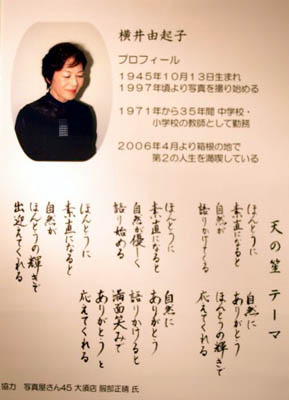 横井由起子
プロフィール
1945年10月13日生まれ
1997年頃より写真を撮り始める
1971年から35年間 中学校・
小学校の教師として勤務
2006年4月より箱根の地で
第2の人生を満喫している
天の笙 テーマ
ほんとうに
素直になると
自然が
語りかけてくる
自然に
ありがとう
ほんとうの輝きで
応えてくれる
ほんとうに
素直になると
自然が優しく
語り始める
自然に
ありがとう
語りかけると
満面笑みで
ありがとうと
応えてくれる
ほんとうに
素直になると
自然が
ほんとうの輝きで
出迎えてくれる
協力 写真屋さん45 大須店 服部正晴 氏